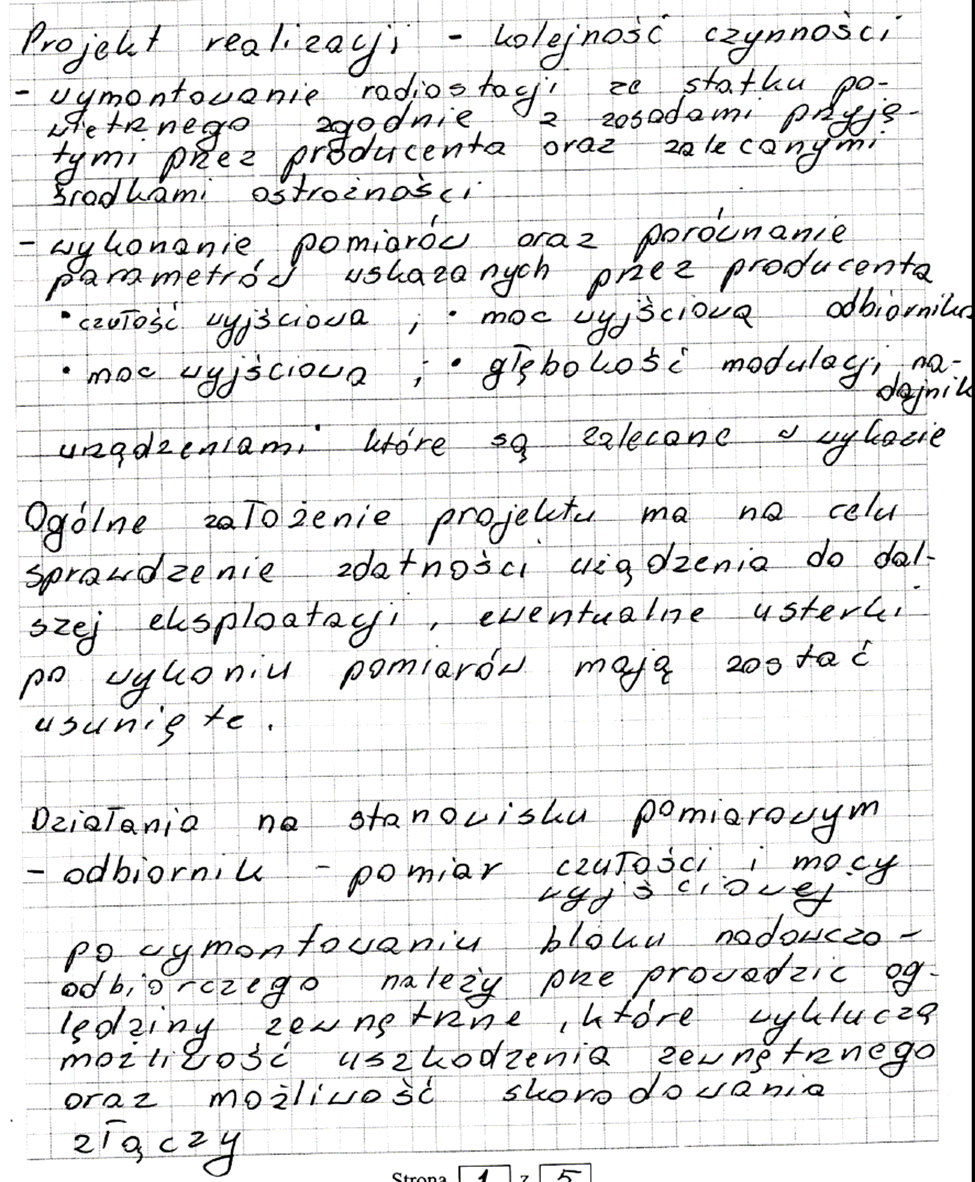 Projekt realizacji - kolejność czynności
- wymontowanie radiostacji ze statku po-
wietrznego zgodnie z zasadami przyję-
tymi przez producenta oraz zalecanymi
środkami ostrożności
- wykonanie pomiarów oraz porównanie
parametrów wskazanych przez producenta
• czułość wyjściowa ; • moc wyjściową odbiornika
• moc wyjściowa ; • głębokość modulacji na-
dajnik
urządzeniami które są zalecane w wykazie
Ogólne założenie projektu ma na celu
sprawdzenie zdatności urządzenia do dal-
szej eksploatacji, ewentualne usterki
po wykoniu pomiarów mają zostać
usunięte.
Działania na stanowisku pomiarowym
- odbiornik - pomiar czułości i mocy
wyjściowej
po wymontowaniu bloku nadawczo-
odbiorczego należy przeprowadzić og-
lędziny zewnętrzne, które wykluczą
możliwość uszkodzenia zewnętrznego
oraz możliwość skorodowania
złączy
Strona 1 z 5